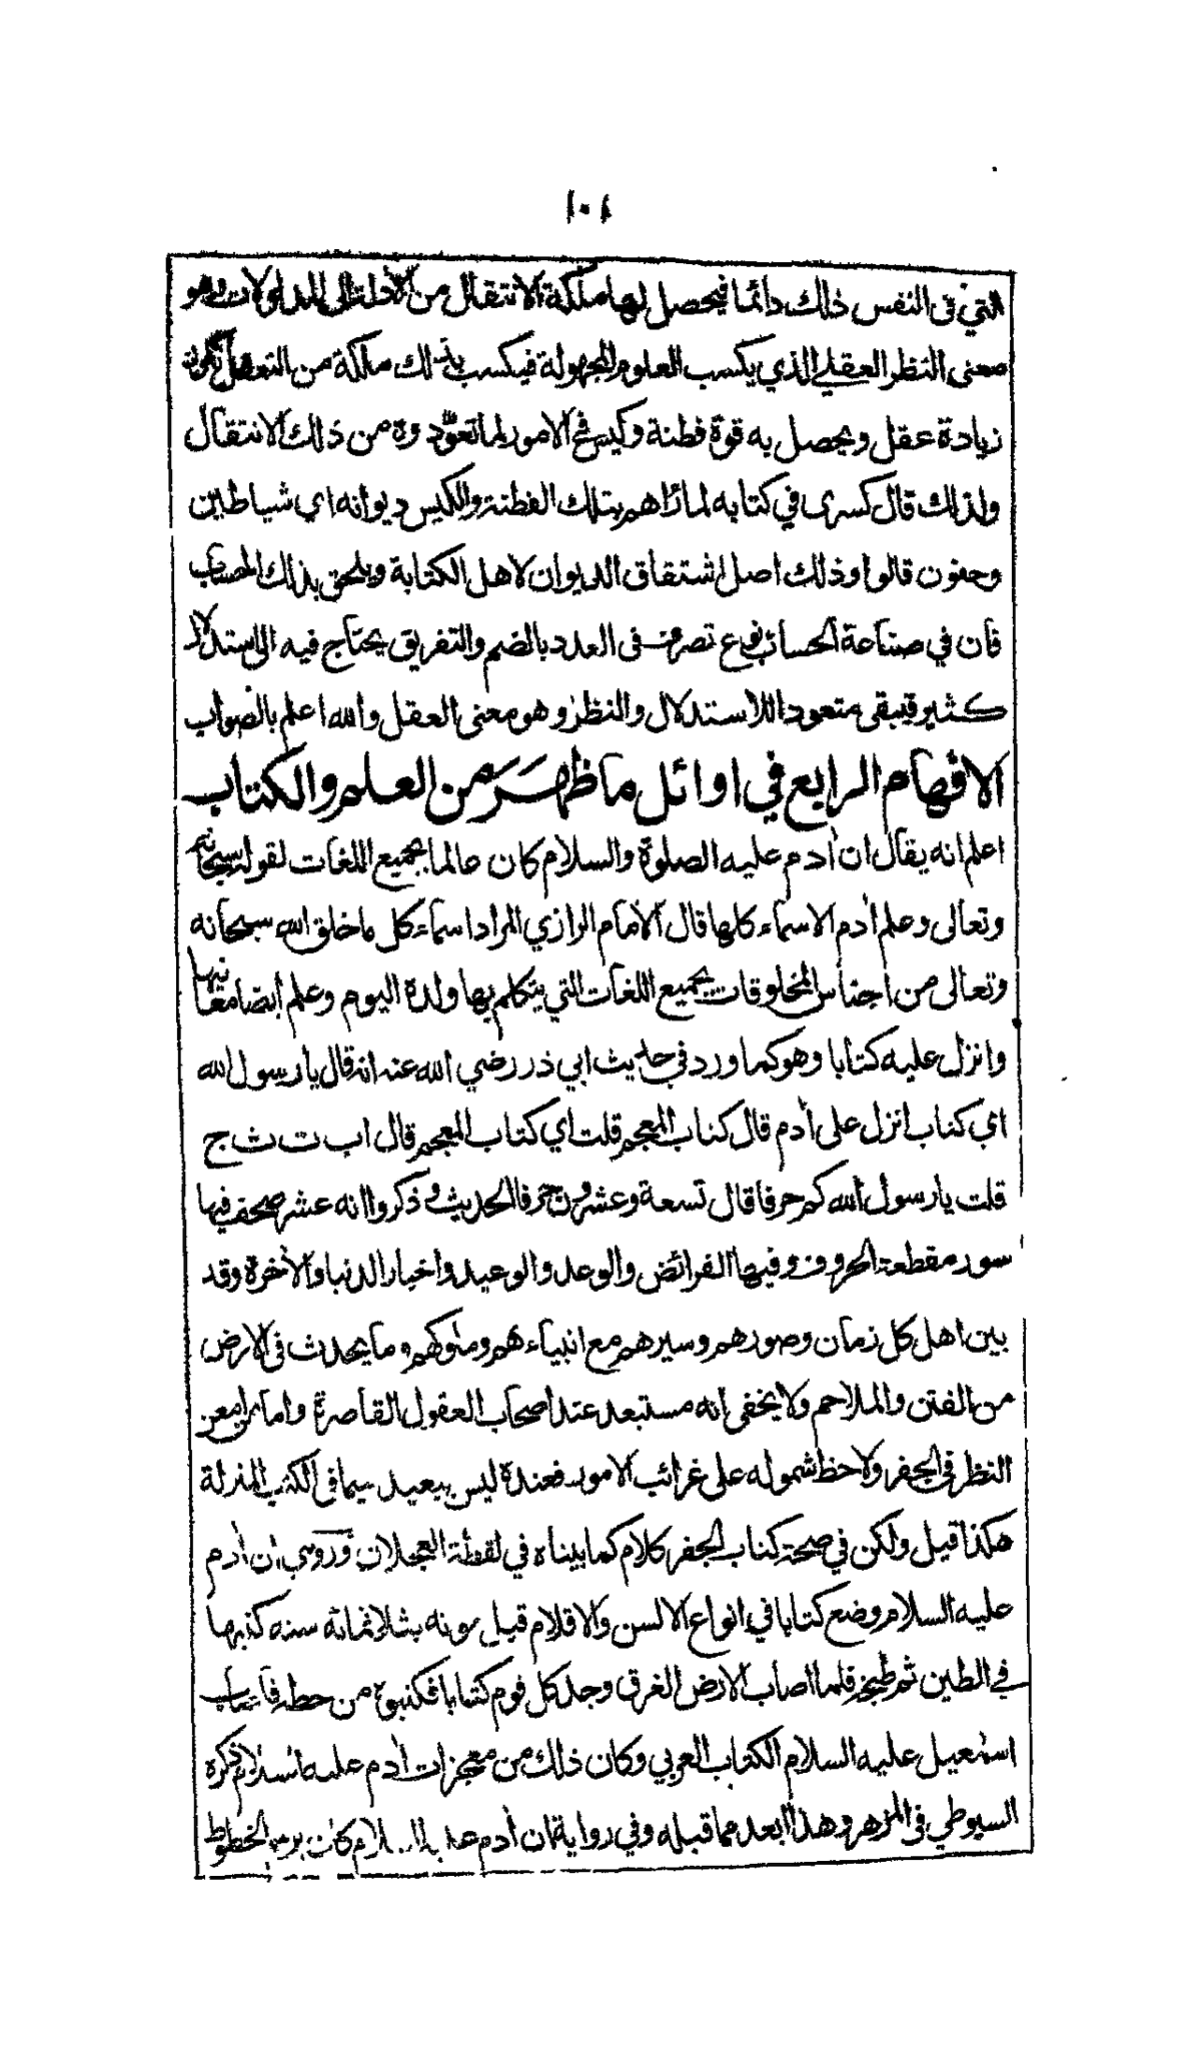 ١٠١
التي في النفس ذلك دائما فيحصل لها ملكة الانتقال من الادلة الى المدلولات وهو
معنى النظر العقلي الذي يكسب العلوم المجهولة فيكسب بذلك ملكة من التعقل تكون
زيادة عقل ويحصل به قوة فطنة وكيس في الامور لما تعودوه من ذلك الانتقال
ولذلك قال كسرى في كتابه لما رأهم بتلك الفطنة والكيس ديوانه اي شياطين
وجنون قالوا وذلك اصل اشتقاق الديوان لاهل الكتابة ويلحق بذلك الحساب
فان في صناعة الحساب نوع تصرف في العدد بالضم والتفريق يحتاج فيه الى استدلال
كثير فيبقى متعودا للاستدلال والنظر وهو معنى العقل والله اعلم بالصواب
الافهام الرابع في اوائل ما ظهر من العلم والكتاب
اعلم انه يقال ان أدم عليه الصلوة والسلام كان عالما بجميع اللغات لقوله سبحانه
وتعالى وعلم أدم الاسماء كلها قال الامام الرازي المراد اسماء كل ما خلق الله سبحانه
وتعالى من اجناس المخلوقات بجميع اللغات التي يتكلم بها ولده اليوم وعلم ايضا معانيها
وانزل عليه كتابا وهو كما ورد في حديث ابي ذر رضي الله عنه انه قال يا رسول الله
اي كتاب انزل على أدم قال كتاب المعجم قلت اي كتاب المعجم قال اب ت ث ج
قلت يا رسول الله كم حرفا قال تسعة وعشرون حرفا الحديث وذكروا انه عشر صحف فيها
سور مقطعة الحروف وفيها الفرائض والوعد والوعيد واخبار الدنيا والأخرة وقد
بين اهل كل زمان وصورهم وسيرهم مع انبياءهم وملوكهم وما يحدث في الارض
من الفتن والملاحم ولا يخفى انه مستبعد عند اصحاب العقول القاصرة واما من امعن
النظر في الجفر ولاحظ شموله على غرائب الامور فعنده ليس ببعيد سيما في الكتب المنزلة
هكذا قيل ولكن في صحة كتاب الجفر كلام كما بيناه في لقطة العجلان وروي ان أدم
عليه السلام وضع كتابا في انواع الالسن والاقلام قبل موته بثلاثمائة سنه كتبها
في الطين ثم طبخه فلما اصاب الارض الغرق وجد كل قوم كتابا فكتبوه من خطه فاصاب
اسمعيل عليه السلام الكتاب العربي وكان ذلك من معجزات أدم عليه السلام ذكره
السيوطي في المزهر وهذا ابعد مما قبله وفي رواية ان أدم عليه السلام كان يرسم الخطوط